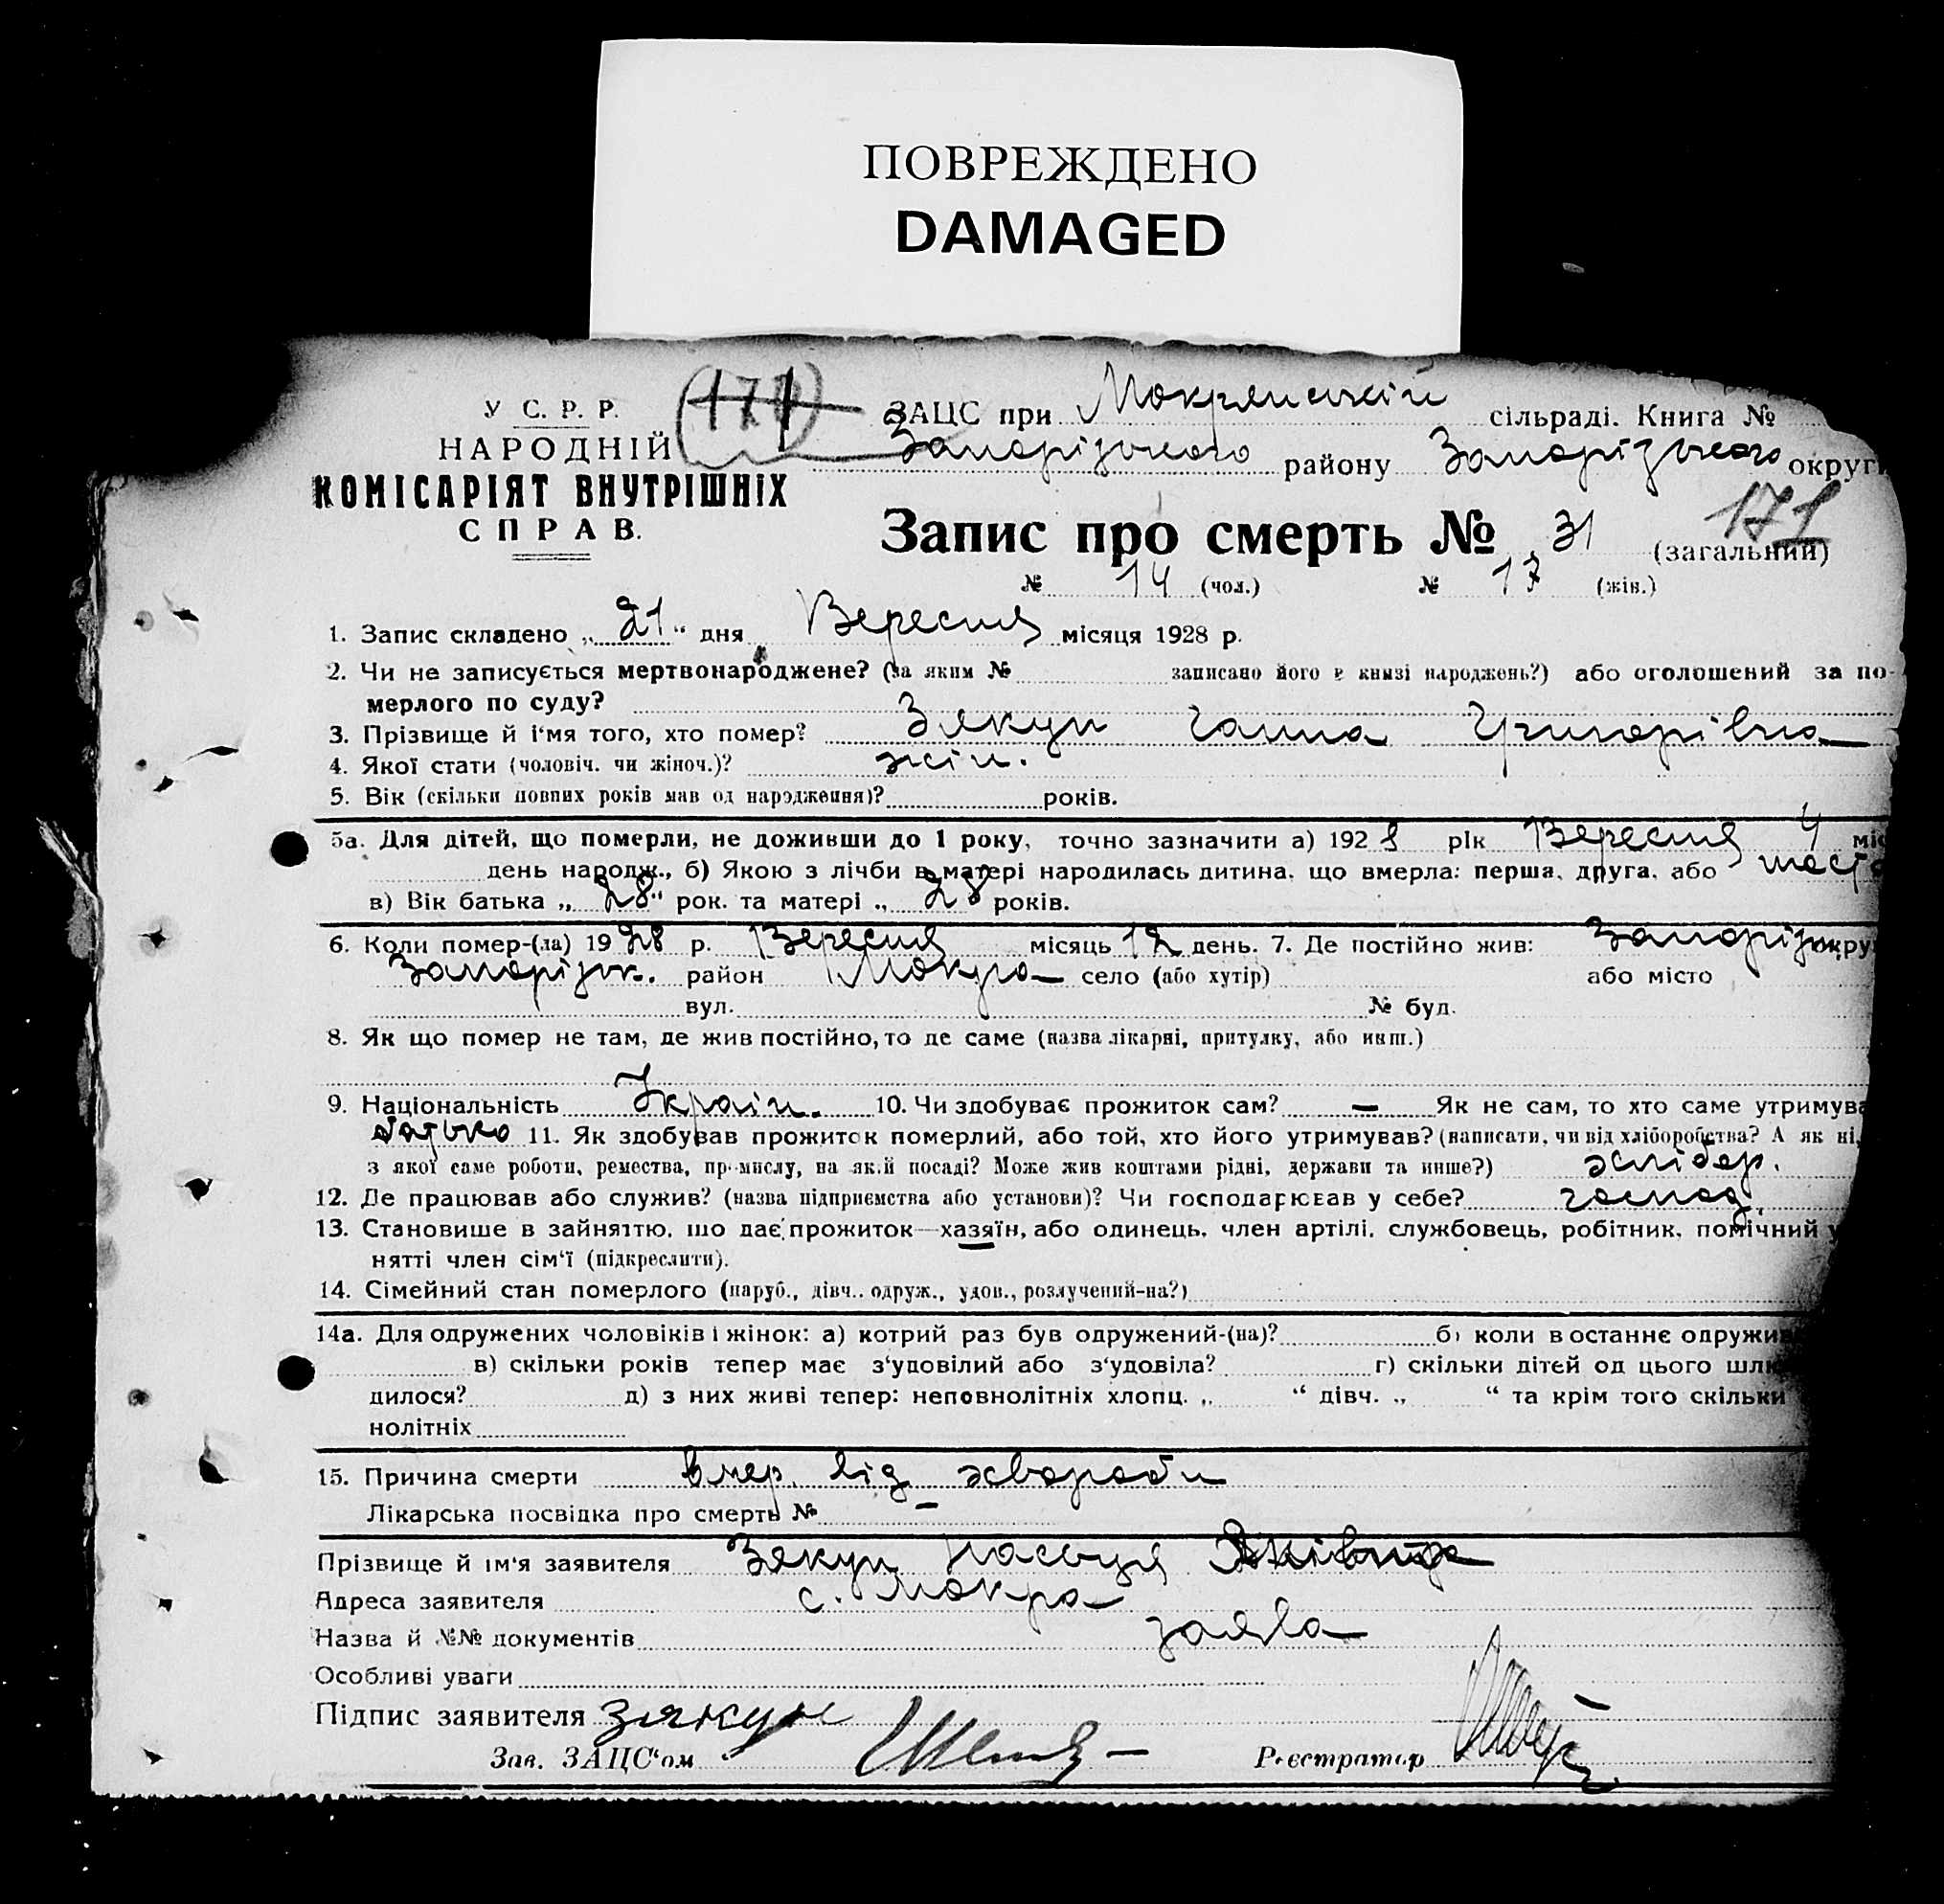 ПОВРЕЖДЕНО
DAMAGED
У С. Р. Р.
НАРОДНІЙ
КОМІСАРІЯТ ВНУТРІШНІХ
СПРАВ.
ЗАЦС при Мокрянській сільраді. Книга №
Запорізького району Запорізького округи
171
Запис про смерть № 31 (загальний)
№ 14 (чол.) № 17 (жін.)
1. Запис складено „ 21 “ дня Вересня місяця 1928 р.
2. Чи не записується мертвонароджене? (за яким № записано його в книзі народжень?) або оголошений за по-
мерлого по суду?
3. Прізвище й і‘мя того, хто помер? Зякун Ганна Григорівна
4. Якої стати (чоловіч. чи жіноч.)? жін.
5. Вік (скільки повних років мав од народження)? років.
5а. Для дітей, що померли, не доживши до 1 року, точно зазначити а) 1928 рік Вересня 4 міс
день народж., б) Якою з лічби в матері народилась дитина, що вмерла: перша, друга, або шоста
в) Вік батька „ 28 “ рок. та матері „ 28 років.
6. Коли помер-(ла) 1928 р. Вересня місяць 12 день. 7. Де постійно жив: Запоріжж окру
Запорізьк. район Мокра село (або хутір) або місто
вул. № буд.
8. Як що помер не там, де жив постійно, то де саме (назва лікарні, притулку, або инш.)
9. Національність Україн. 10. Чи здобуває прожиток сам? — Як не сам, то хто саме утримува
батько 11. Як здобував прожиток померлий, або той, хто його утримував? (написати, чи від хліборобства? А як ні,
з якої саме роботи, ремества, промислу, на якій посаді? Може жив коштами рідні, держави та инше?) хлібор.
12. Де працював або служив? (назва підприємства або установи)? Чи господарював у себе? господ.
13. Становище в зайнятю, що дає прожиток—хазяїн, або одинець, член артілі, службовець, робітник, помічний у
нятті член сім‘ї (підкреслити).
14. Сімейний стан померлого (паруб., дівч., одруж., удов., розлучений-на?)
14а. Для одружених чоловіків і жінок: а) котрий раз був одружений-(на)? б) коли в останнє одружив
в) скільки років тепер має з‘удовілий або з‘удовіла? г) скільки дітей од цього шлю
дилося? д) з них живі тепер: неповнолітніх хлопц. „ “ дівч. „ “ та крім того скільки
нолітніх
15. Причина смерти вмер. від хвороби
Лікарська посвідка про смерть № —
Прізвище й ім‘я заявителя Зякун
Адреса заявителя с. Мокра
Назва й №№ документів заява
Особливі уваги
Підпис заявителя Зякун
Зав. ЗАЦС‘ом Реєстратор